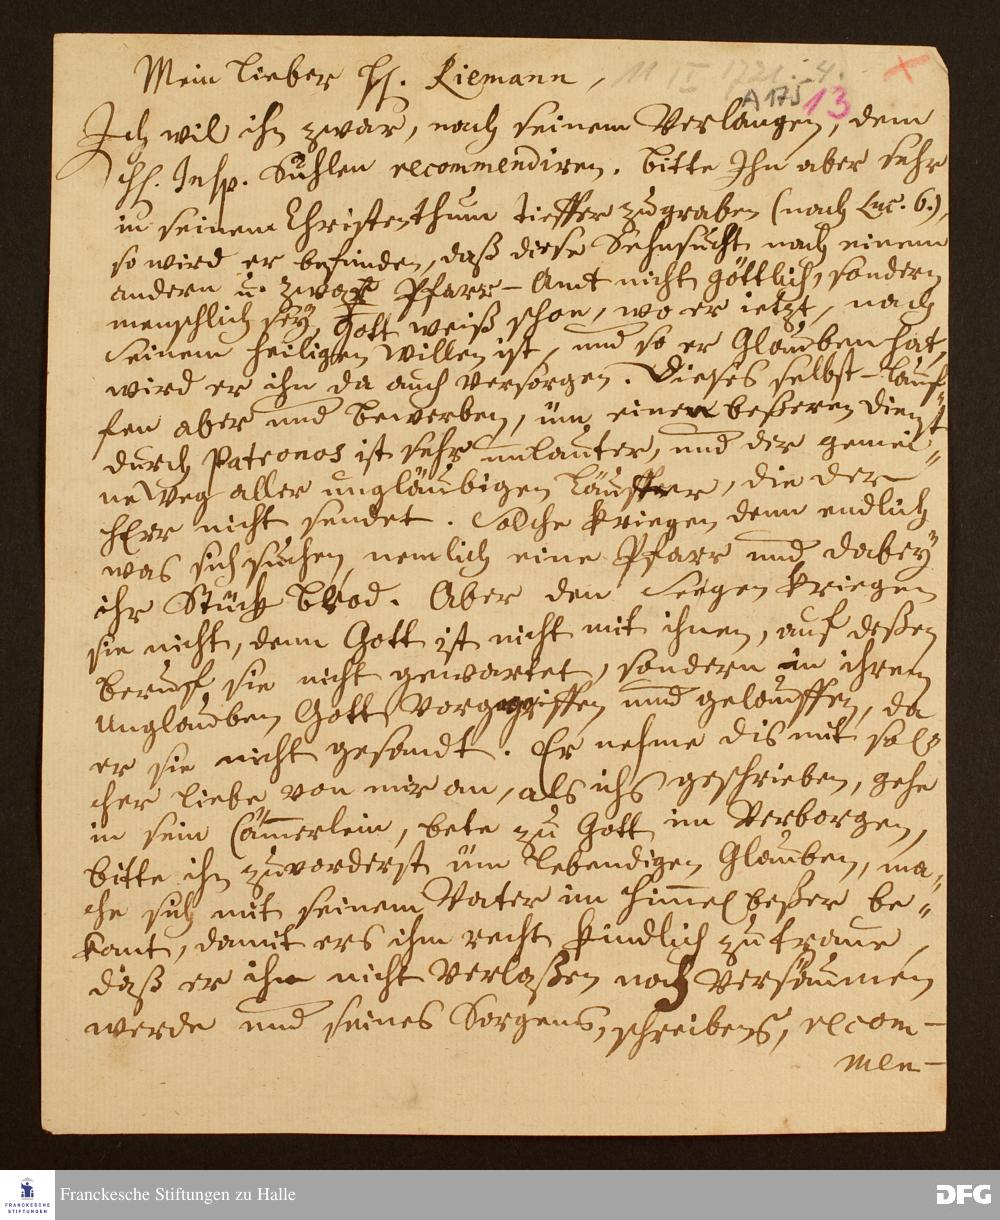 11 II 1721. 4.
A 175 13
Mein lieber H. Riemann,
Ich wil ihn zwar, nach seinem Verlangen, dem
H. Insp. Suhlen recommendiren. bitte Ihn aber sehr
in seinem Christenthum tieffer zu graben (nach Luc. 6.),
so wird er befinden, daß diese Sehnsucht nach einem
andern u. zwar Pfarr-Amt nicht göttlich, sondern
menschlich sey, Gott weiß schon, wo er ietzt, nach
seinem heiligen Willen ist, und so er Glauben hat,
wird er ihn da auch versorgen. Dieses selbst-lauf-
fen aber und bewerben, üm einen beßeren Dienst
durch Patronos ist sehr unlauter, und der gemei-
ne Weg aller ungläubigen Läuffer, die der
HErr nicht sendet. Solche kriegen denn endlich
was sich suchen, nemlich eine Pfarr und dabey
ihr Stück brod. Aber den Seegen kriegen
sie nicht, denn Gott ist nicht mit ihnen, auf deßen
beruff sie nicht gewartet, sondern in ihrem
Unglauben Gott vorgegriffen und gelauffen, da
er sie nicht gesandt. Er nehme dis mit sol-
cher liebe von mir an, als ichs geschrieben, gehe
in sein Cämerlein, bete zu Gott im Verborgen,
bitte ihn zuvorderst üm lebendigen Glauben, ma-
che sich mit seinem Vater im Himmel beßer be-
kant, damit ers ihm recht kindlich zutraue,
daß er ihn nicht verlaßen noch versäumen
werde und seines Sorgens, schreibens, recom-
men-
FRANCKESCHE STIFTUNGEN
Franckesche Stiftungen zu Halle
DFG